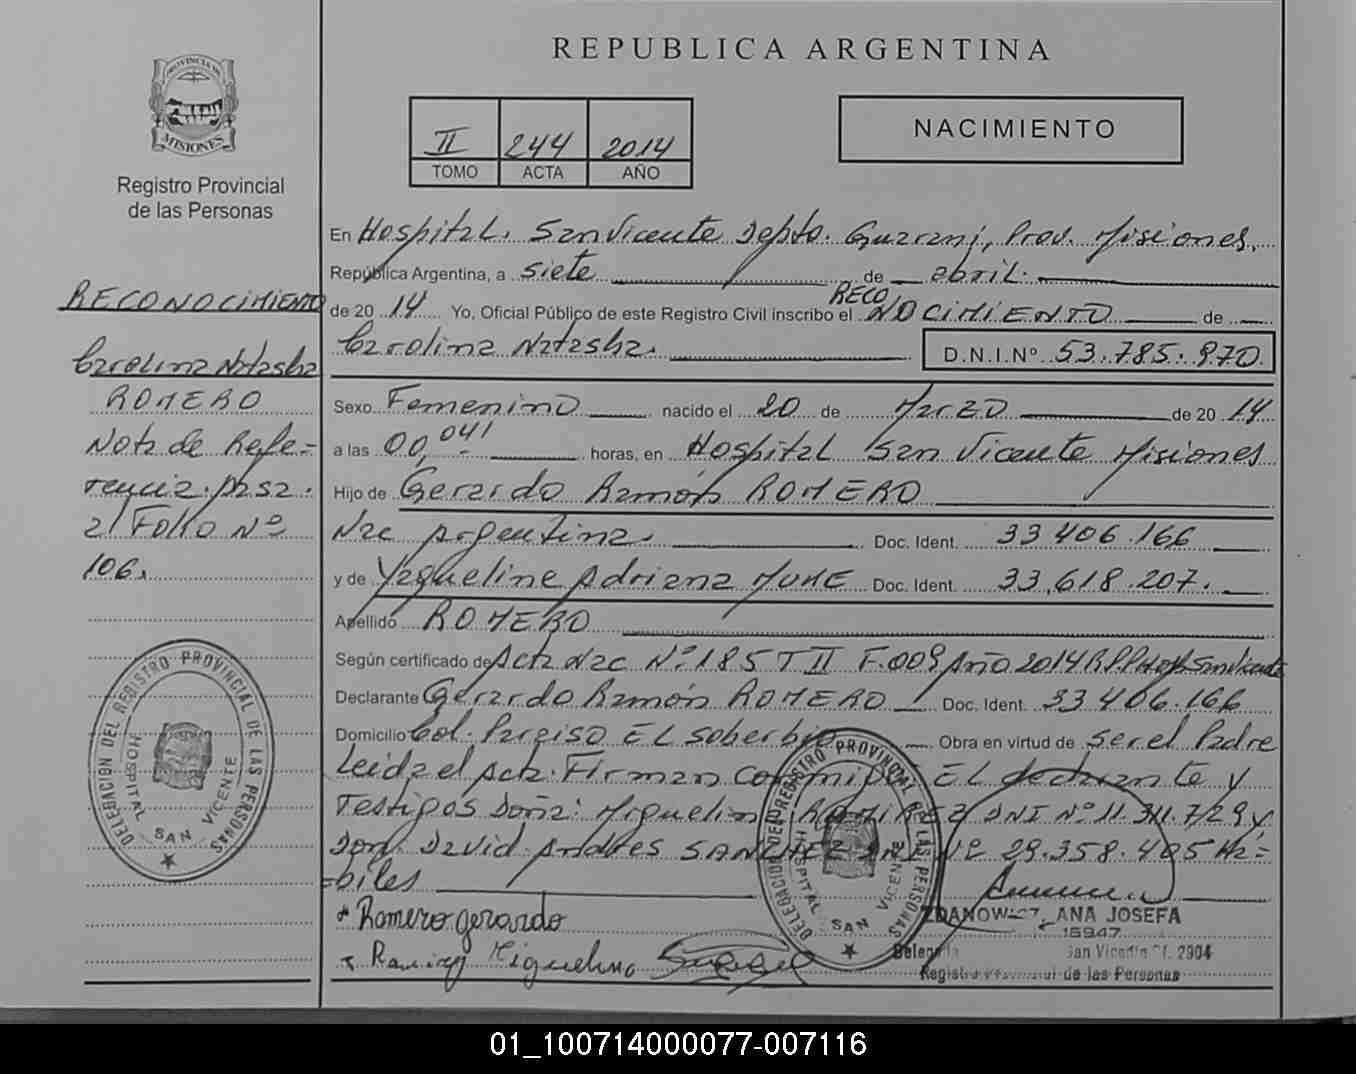 REPUBLICA ARGENTINA
PROVINCIA DE
MISIONES
Registro Provincial
de las Personas
II 244 2014
TOMO ACTA AÑO
NACIMIENTO
RECONOCIMIENTO
Carolina Natasha
ROMERO
Nota de Refe=
rencia pasa
al Folio Nº
106.
En Hospital. San Vicente Depto. Guarani, Prov. Misiones.
República Argentina, a siete de abril.
de 20 14 Yo, Oficial Público de este Registro Civil inscribo el RECONOCIMIENTO de
Carolina Natasha. D.N.I.Nº 53.785.970.
Sexo Femenino nacido el 20 de Marzo de 20 14
a las 00,04' horas, en Hospital San Vicente Misiones
Hijo de Gerardo Ramón ROMERO
Nac argentina. Doc. Ident. 33 406.166
y de Yaqueline Adriana MUHE Doc. Ident. 33.618.207.
Apellido ROMERO
Según certificado de Acta Nac Nº 185 T II F.009 Año 2014 R.P.P Hosp San Vicente
Declarante Gerardo Ramón ROMERO Doc. Ident. 33 406.166
Domicilio Col. Paraiso EL Soberbio Obra en virtud de ser el Padre
Leida el Acta. Firman Conmigo EL declarante y
Testigos Doña: Miguelina RAMIREZ DNI Nº 11.311.729 y
Don David Andres SANCHEZ DNI Nº 29.358.405 Ha=
=biles
Romero gerardo
Ramirez Miguelina
DELEGACION DEL REGISTRO PROVINCIAL DE LAS PERSONAS
HOSPITAL SAN VICENTE
DELEGACION DEL REGISTRO PROVINCIAL DE LAS PERSONAS
HOSPITAL SAN VICENTE
ZDANOWICZ, ANA JOSEFA
15947
San Vicente 2904
Registro Provincial de las Personas
01_100714000077-007116